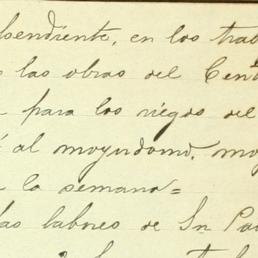 bsendiente, en los trab
s las obras del Cent
a para los riegos del
é al moyordomo, moy
a la semana=
las labores de Sn Pa